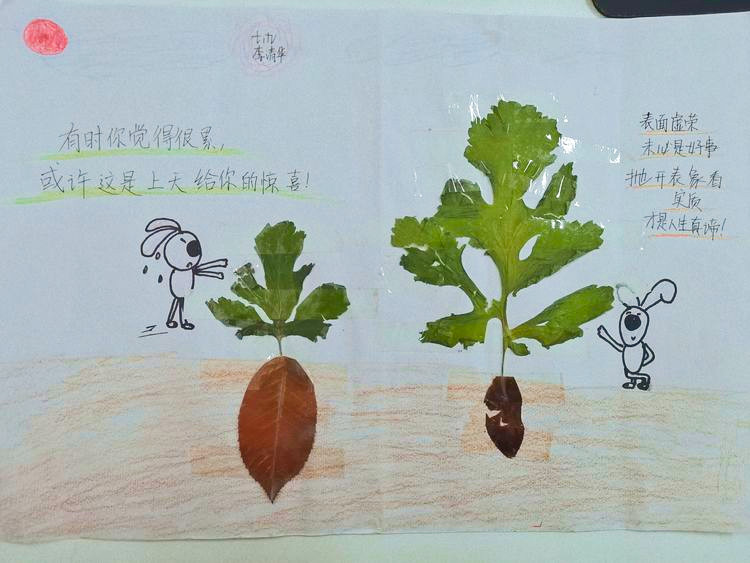 七(九)
李清华
有时你觉得很累,
或许这是上天给你的惊喜!
表面虚荣
未必是好事
抛开表象看
实质
才是人生真谛!